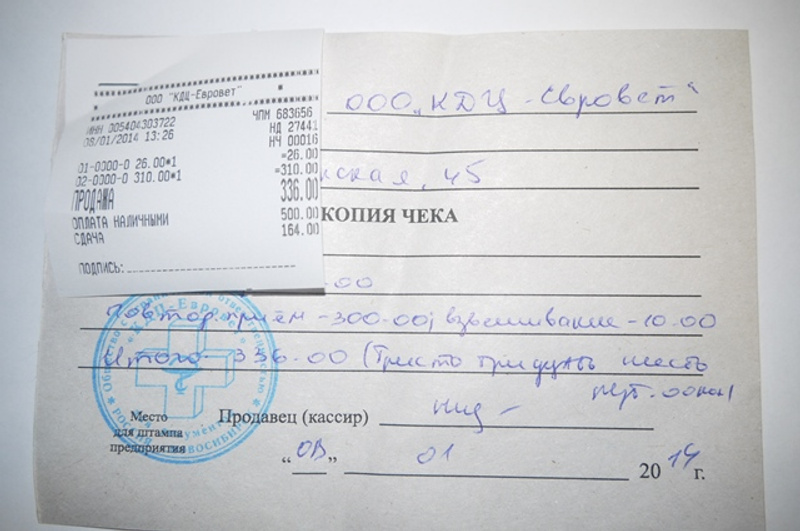 ООО "КДЦ-Евровет"
ИНН 005404303722 ЧПМ 683656
08/01/2014 13:26 НД 27441
НЧ 00016
01-0000-0 26.00*1 =26.00
02-0000-0 310.00*1 =310.00
ПРОДАЖА 336.00
ОПЛАТА НАЛИЧНЫМИ 500.00
СДАЧА 164.00
ПОДПИСЬ:
ООО „КДЦ-Евровет“
нская, 45
КОПИЯ ЧЕКА
-00
Повтор. приём -300-00; взвешивание -10.00
Итого 336.00 (Триста тридцать шесть
руб. 00коп)
Место для штампа предприятия
Продавец (кассир)
"08" 01 2014 г.
Общество с ограниченной ответственностью
«КДЦ-Евровет»
РОССИЯ НОВОСИБИРСК